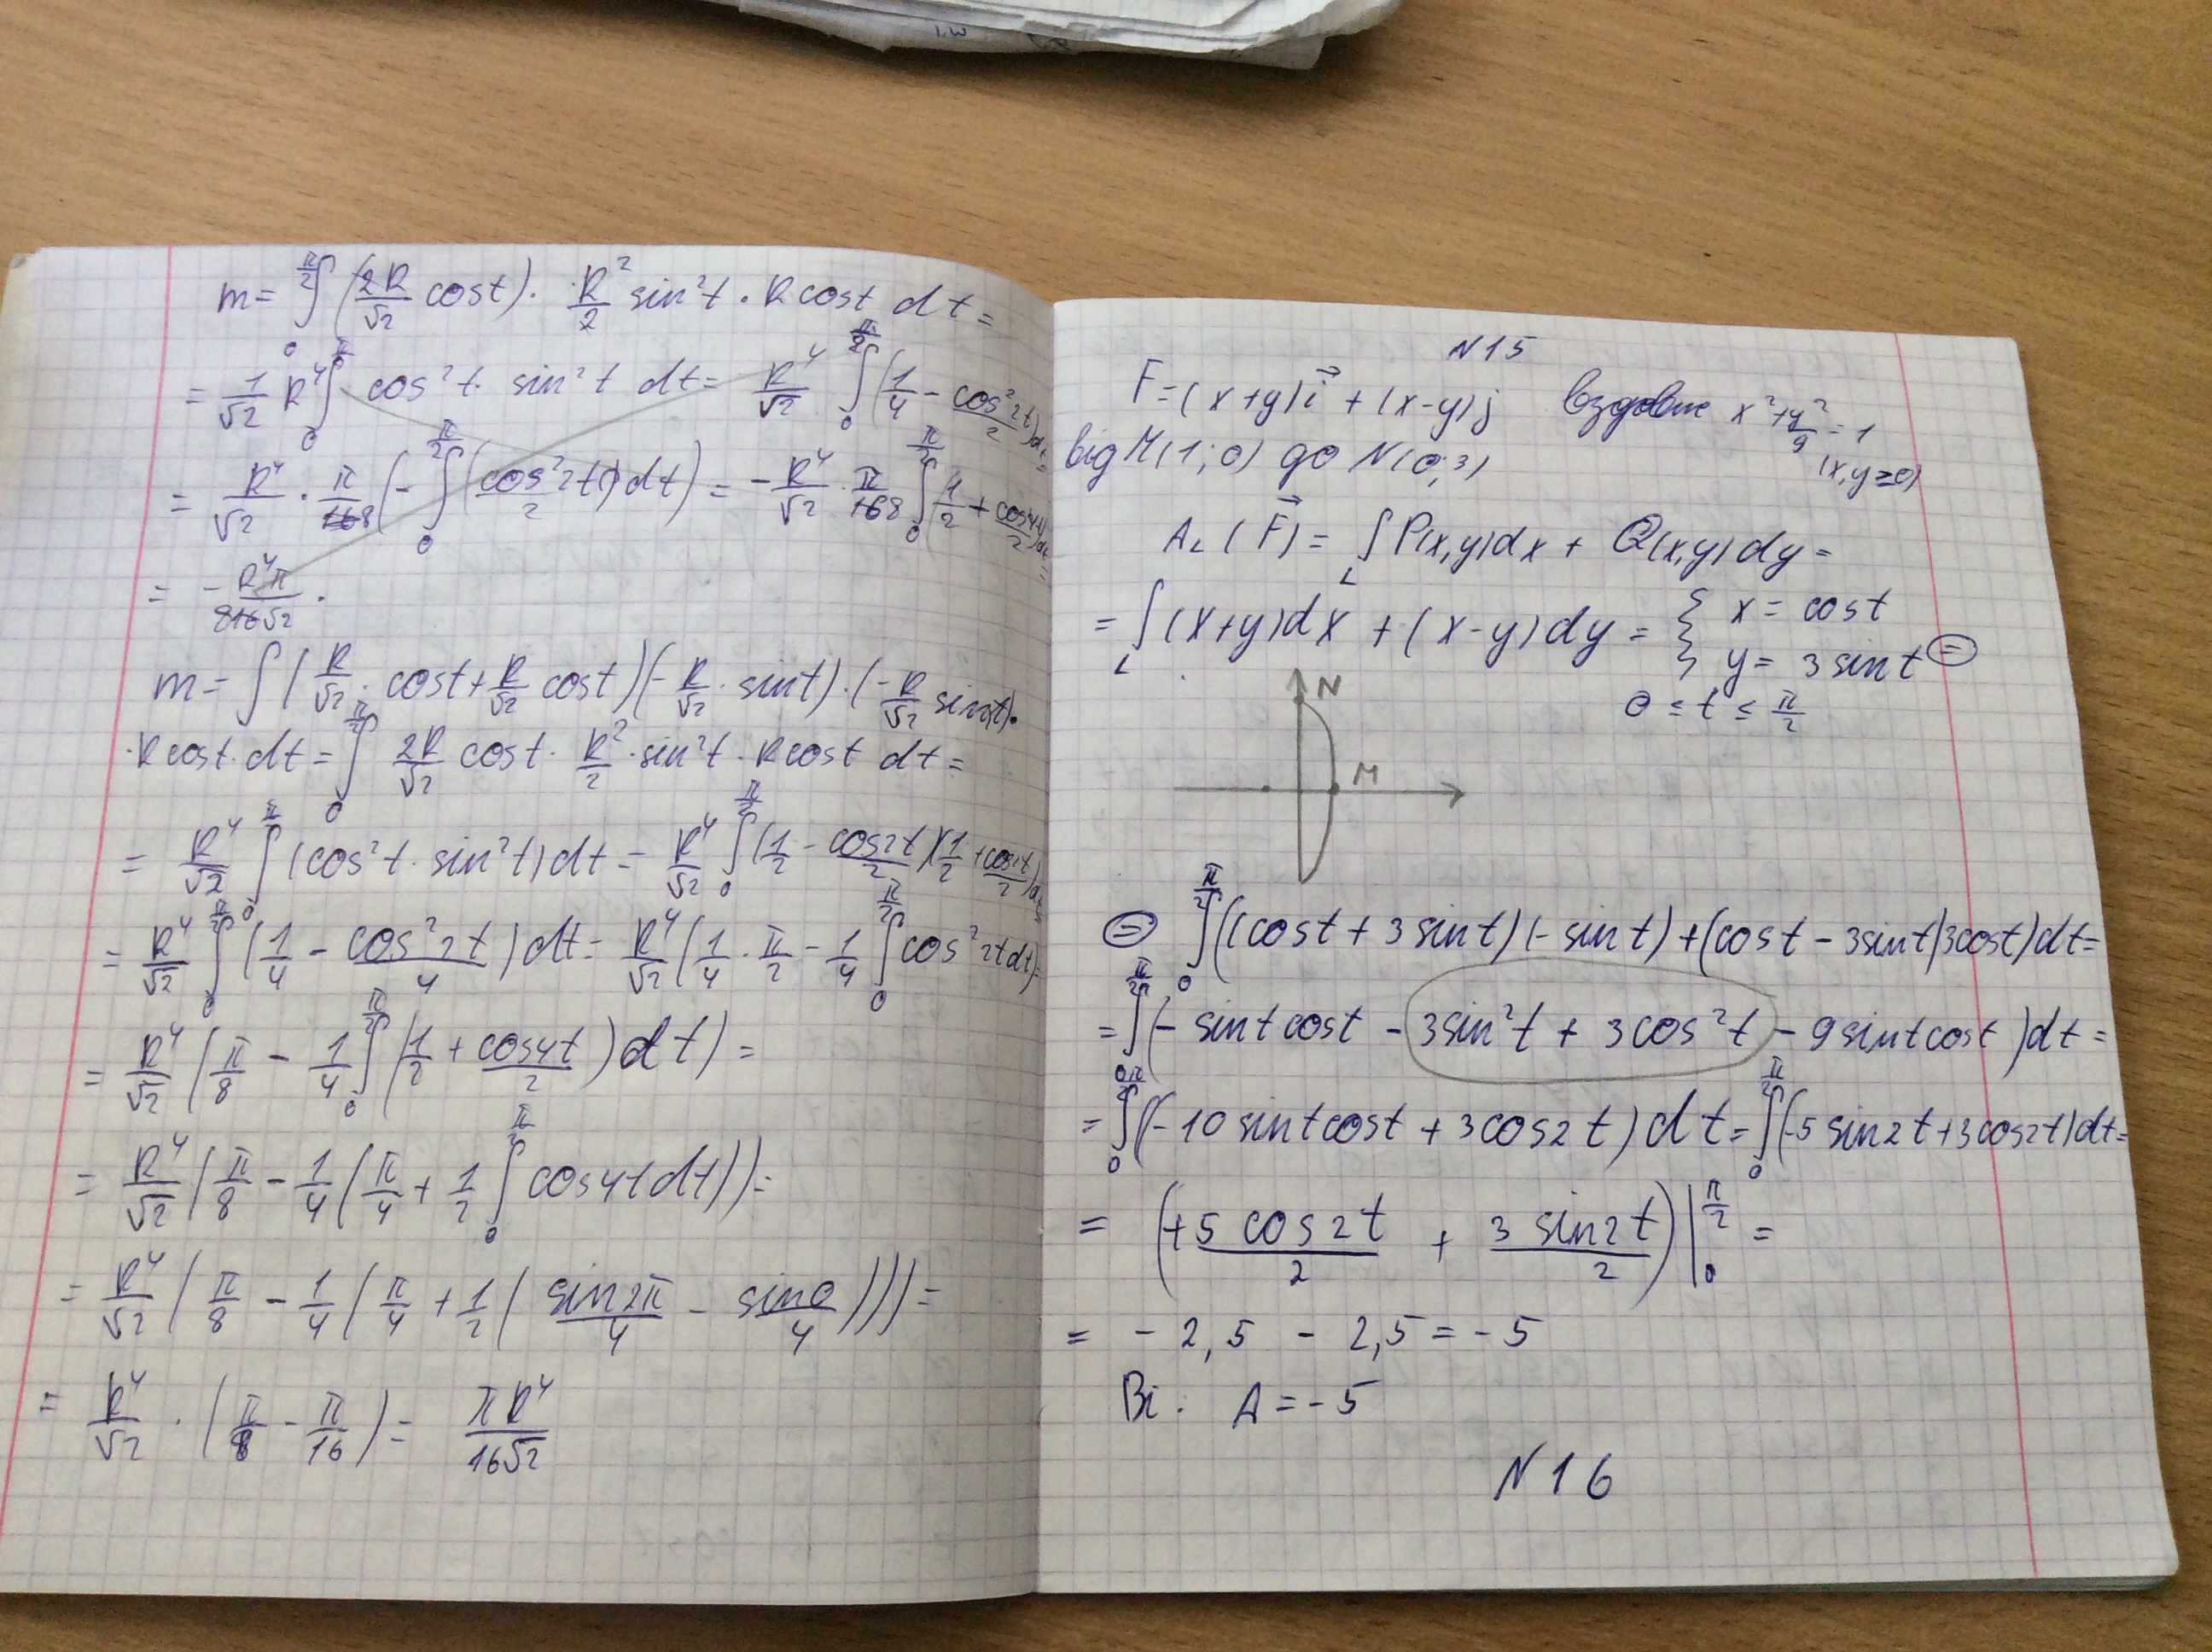 m = ∫₀^{π/2} (2R/√2 cost) · R²/2 sin²t · R cost dt =
= 1/√2 R⁴ ∫₀^{π/2} cos²t · sin²t dt = R⁴/√2 ∫₀^{π/2} (1/4 - cos²2t/2) dt =
= R⁴/√2 · π/8 (- ∫₀^{π/2} (cos²2t/2) dt) = - R⁴/√2 · π/8 ∫₀^{π/2} (1/2 + cos4t/2) dt =
= -R⁴π/8√2 .
m = ∫ (R/√2 · cost + R/√2 cost)(-R/√2 · sint) · (-R/√2 sint) ·
· R cost · dt = ∫₀^{π/2} 2R/√2 cost · R²/2 · sin²t · R cost dt =
= R⁴/√2 ∫₀^{π/2} (cos²t · sin²t) dt = R⁴/√2 ∫₀^{π/2} (1/2 - cos2t/2)(1/2 + cos2t/2) dt =
= R⁴/√2 ∫₀^{π/2} (1/4 - cos²2t/4) dt = R⁴/√2 (1/4 · π/2 - 1/4 ∫₀^{π/2} cos²2t dt) =
= R⁴/√2 (π/8 - 1/4 ∫₀^{π/2} (1/2 + cos4t/2) dt) =
= R⁴/√2 (π/8 - 1/4 (π/4 + 1/2 ∫₀^{π/2} cos4t dt)) =
= R⁴/√2 (π/8 - 1/4 (π/4 + 1/2 (sin2π/4 - sin0/4))) =
= R⁴/√2 · (π/8 - π/16) = πR⁴/16√2
N15
F = (x+y)i⃗ + (x-y)j вздовж x² + y²/9 = 1
від M(1;0) до N(0;3) (x,y≥0)
A_L (F⃗) = ∫_L P(x,y)dx + Q(x,y)dy =
= ∫_L (x+y)dx + (x-y)dy = { x = cost
y = 3 sint ⊜
0 ≤ t ≤ π/2
N
M
⊜ ∫₀^{π/2} ((cost + 3 sint)(-sint) + (cost - 3sint)3cost) dt =
= ∫₀^{π/2} (- sint cost - 3sin²t + 3cos²t - 9 sint cost) dt =
= ∫₀^{π/2} (-10 sint cost + 3cos2t) dt = ∫₀^{π/2} (-5 sin2t + 3cos2t) dt =
= (+5 cos2t/2 + 3 sin2t/2) |₀^{π/2} =
= - 2,5 - 2,5 = - 5
Ві. A = - 5
N16